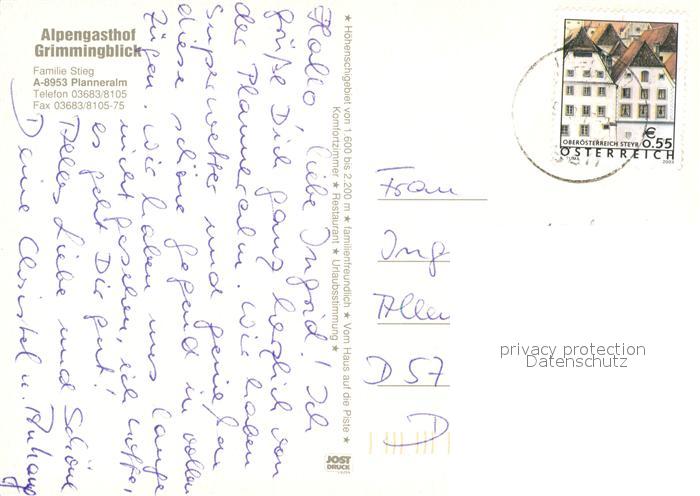 Alpengasthof
Grimmingblick
Familie Stieg
A-8953 Planneralm
Telefon 03683/8105
Fax 03683/8105-75
Hallo liebe Ingrid! Ich
grüße Dich ganz herzlich von
der Planneralm. Wir haben
Superwetter und genießen
diese schöne Gegend in vollen
Zügen. Wir haben uns lange
nicht gesehen, ich hoffe,
es geht Dir gut!
Alles Liebe und Schöne
Deine Christel u. Anhang
★ Höhenschigebiet von 1.600 bis 2.200 m ★ familienfreundlich ★ Vom Haus auf die Piste ★
Komfortzimmer ★ Restaurant ★ Urlaubsstimmung ★
JOST
DRUCK
€
0,55
OBERÖSTERREICH STEYR
ÖSTERREICH
Frau
Ing
Alle
D 57
D
privacy protection
Datenschutz